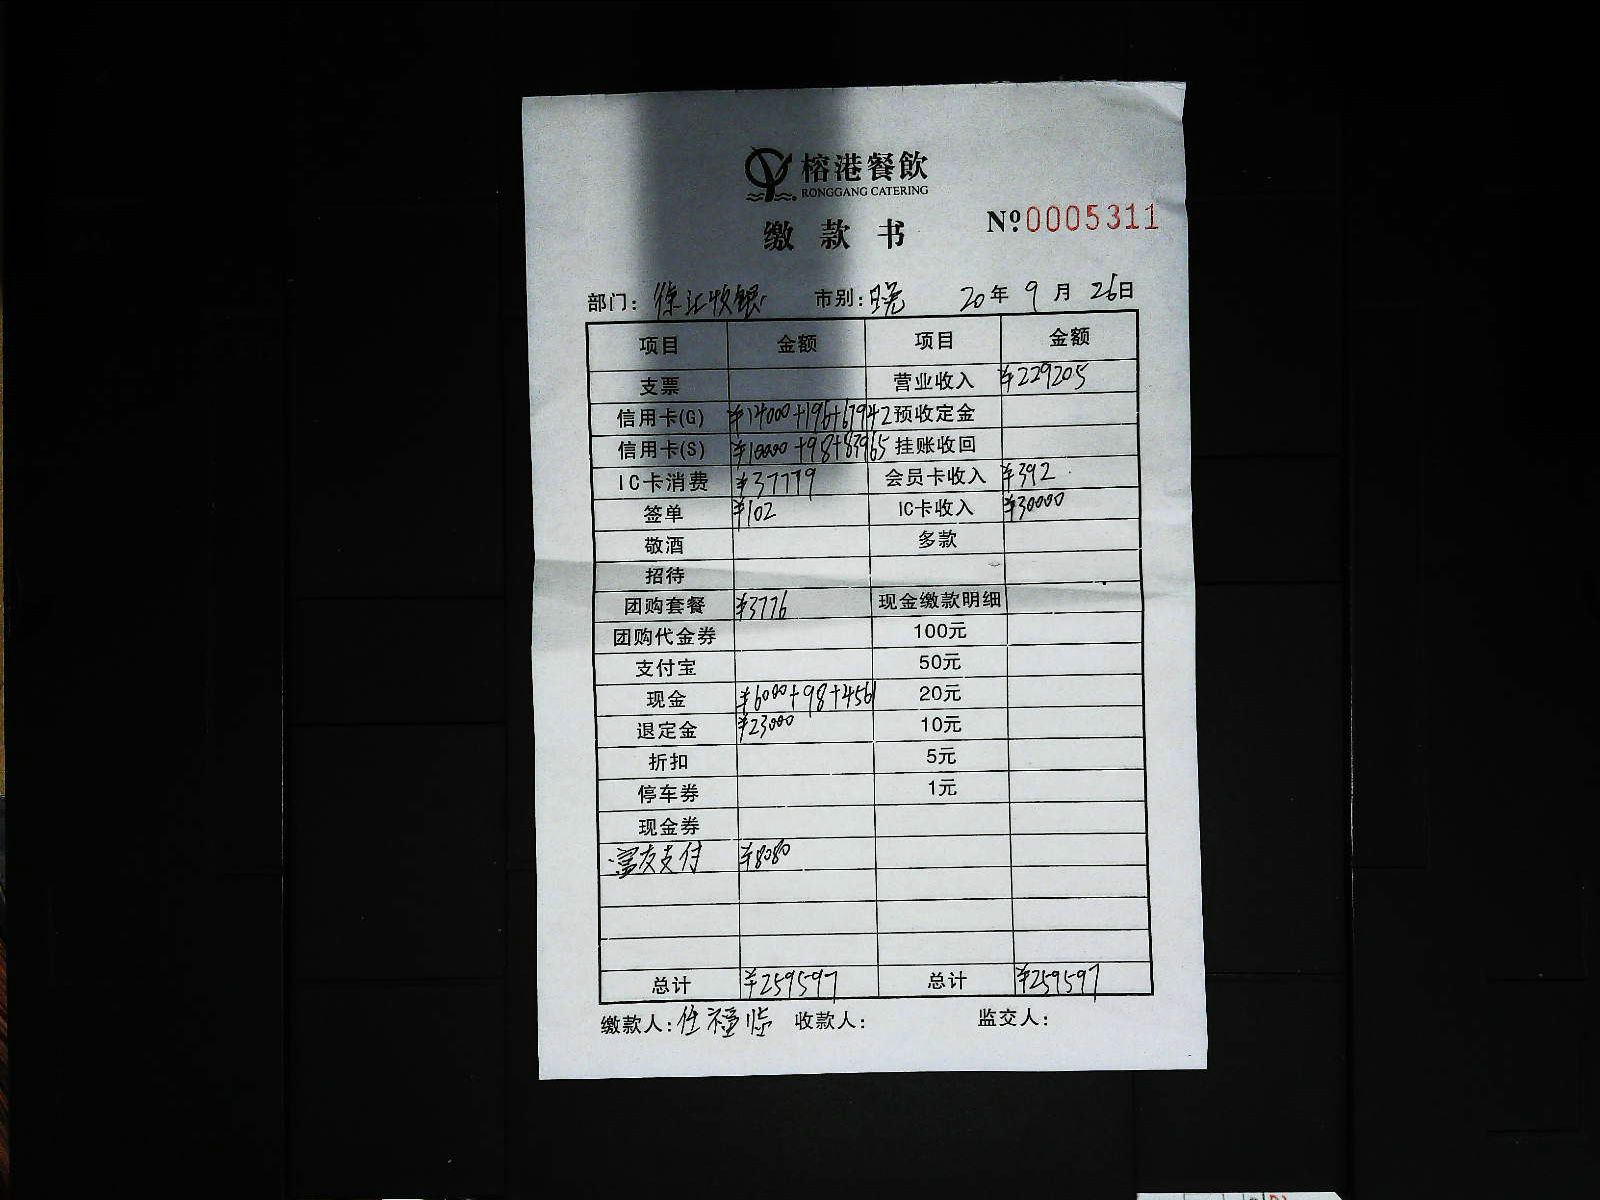 榕港餐飲
RONGGANG CATERING
缴款书
№0005311
部门：徐汇收银 市别：晚 20年9月26日
项目 金额 项目 金额
支票 营业收入 ¥229205
信用卡(G) ¥14000+196+67942 预收定金
信用卡(S) ¥10000+98+83965 挂账收回
IC卡消费 ¥37779 会员卡收入 ¥392
签单 ¥102 IC卡收入 ¥30000
敬酒 多款
招待
团购套餐 ¥3776 现金缴款明细
团购代金券 100元
支付宝 50元
现金 ¥6000+98+4561 20元
退定金 ¥23000 10元
折扣 5元
停车券 1元
现金券
富友支付 ¥8080
总计 ¥259597 总计 ¥259597
缴款人：任 收款人： 监交人：